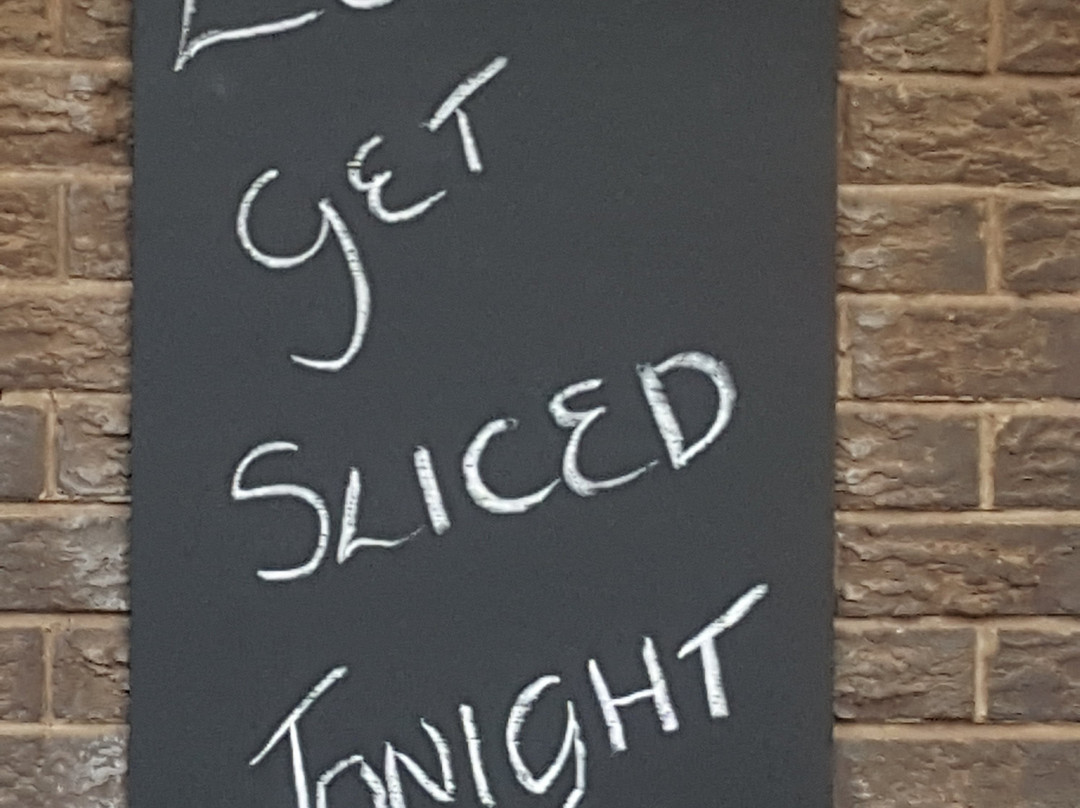 GET
SLICED
TONIGHT